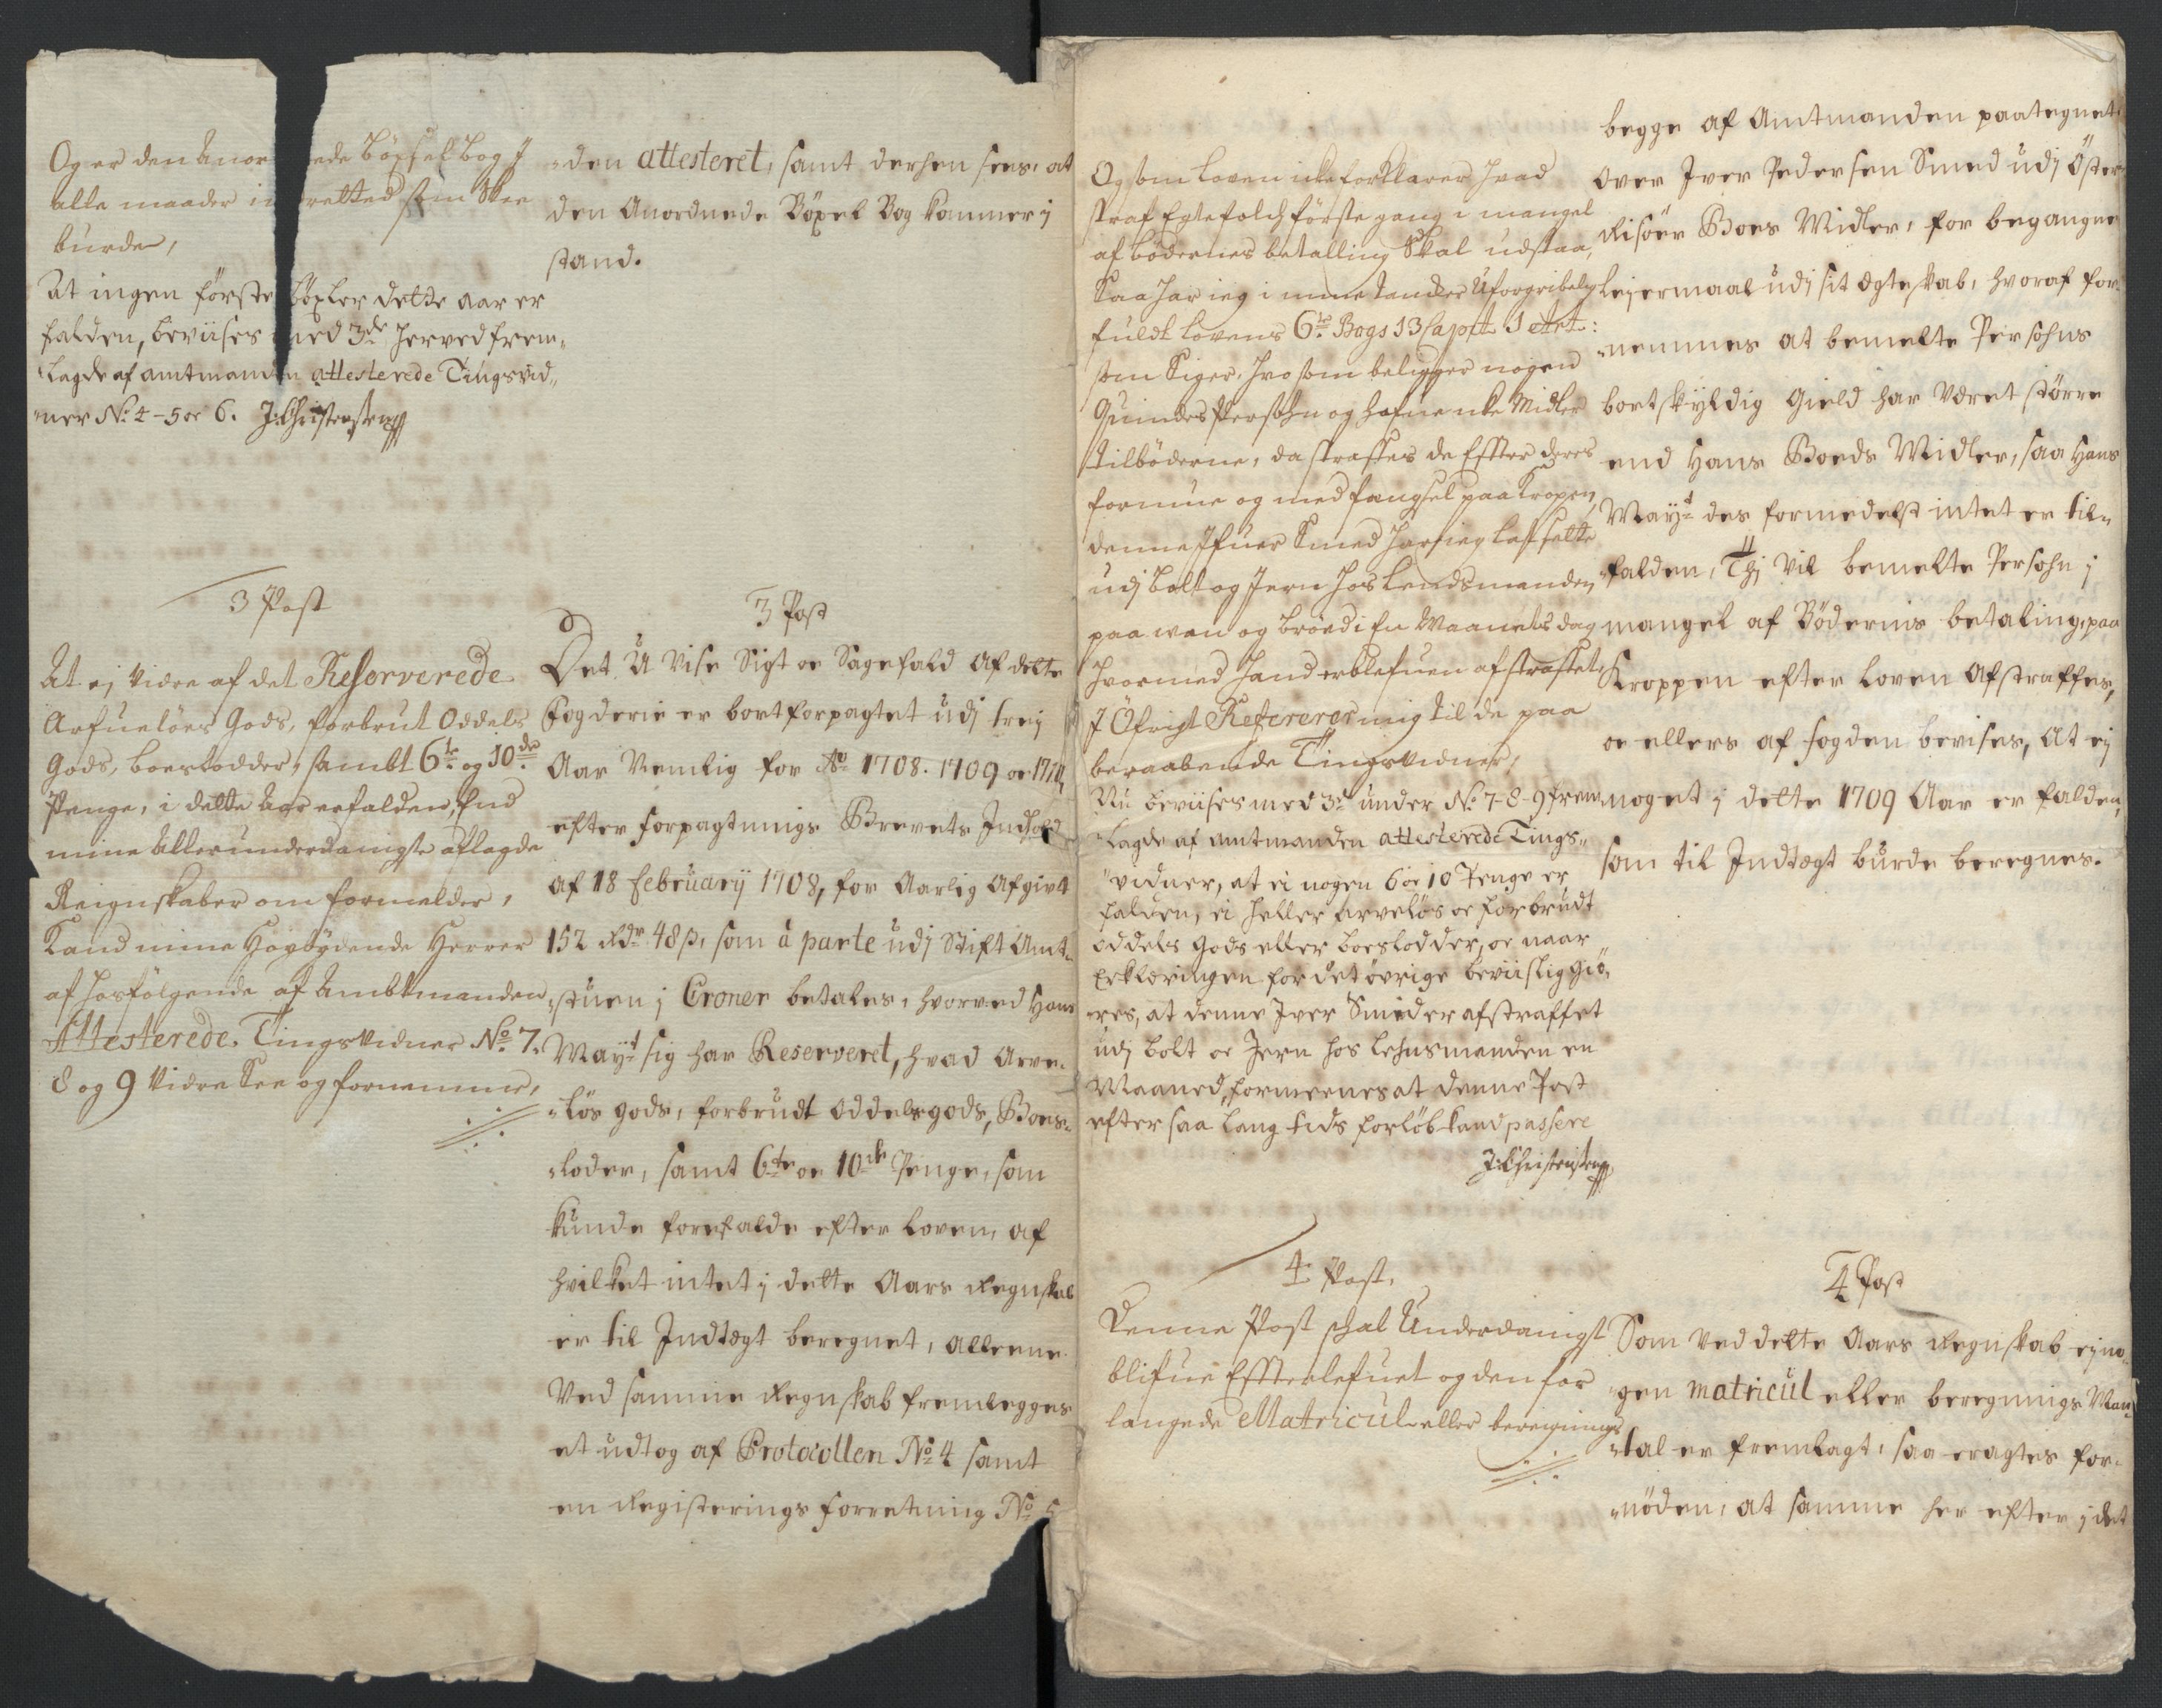 Og er den Anor ede Böxsel Bog J
alle maader i rettet som Skee
burde,
At ingen förste Böxler dette aar er
falden, beviises med 3de herved frem-
lagde af amtmanden attesterede Tingsvid-
ner No: 4-5 oc 6. J: Christensen
3 Post
At ej videre af det Resserverede
Arfueløes Gods, forbrut Oddels
Gods, boeslodder, sambt 6te og 10de
Penge, i dette Aar erfalden, End
mine Allerunderdanigste aflagde
Reignskaber om formelder,
Kand mine Høybydende Herrer
af hosfølgende af Ambtmanden
Attesterede Tingsvidner No 7.
8 og 9 videre See og fornemme,
-den attesteret, samt derhen sees, at
den Anordnede Böxel Bog kommer j
stand.
3 Post
Det U vise Sigt oc Sagefald af dette
Fogderie er bortforpagtet udj trej
Aar Nemlig for Ao 1708. 1709 oc 1710,
efter forpagtnings Brevets Indhold
af 18 february 1708, for Aarlig Afgivt
152 Rdr 48 s, som à parte udj Stift Amt-
-stuen j Croner betales, hvorved Hans
Mayt sig har Reserveret, hvad Arve-
-lös gods, forbrudt oddelsgods, Boes-
-loder, samt 6te oc 10de Penge, som
kunde forefalde efter loven, af
hvilket intet j dette Aars Regnskab
er til Indtægt beregnet, alleene
ved samme Regnskab fremlegges
et udtog af Protocollen No 4 samt
en Registerings forretning No 5
Og som Loven icke forklarer hvad
straf Egtefolch förste gang i mangel
af bödernes betalling Skal udstaa,
Saa har ieg i mine tancker Uforgribelig
fuldt Lovens 6te Bogs 13 Capit: 1 Art:
som Siger, hvo som beligger nogen
Quindes Persohn og hafuer icke Midler
til böderne, da straffes de Effter deres
formue og med fengsel paa kropen,
denne Ifuer Smed har ieg lat sette
udj bolt og Jern hos Lendsmanden
paa van og bröed i En Maanets dag
hvormed hand erblefuen afstraffet,
J Öfrigt Refererer mig til de paa
beraabende Tingsvidner,
Nu beviises med 3de under No 7-8-9 frem
-lagde af amtmanden attesterede Tings-
-vidner, at ei nogen 6 oc 10 Penge er
falden, ei heller arvelös oc forbrudt
oddels gods eller boeslodder, oc naar
Erklæringen for det övrige beviislig giö-
-res, at denne Iver Smid er afstraffet
udj bolt oc Jern hos lehnsmanden en
Maaned, formeenes at denne Post
efter saa lang tids forlöb kand passere
J: Christensen
4. Post.
Denne Post schal Underdanigst
blifue Effterlefuet og den for
langede Matricul eller bereignings
begge af Amtmanden paategnet
over Iver Pedersen Smed udj Öster
Risöer Boes Midler, for begangne
Leyermaal udj sit Egteskab, hvoraf for-
-nemmes at bemelte Persohns
bortskyldig Gield har været större
end Hans Boeds Midler, saa Hans
Mayt des formedelst intet er til-
-falden, Thj vil bemelte Persohn j
mangel af Bödernis betaling, paa
Kroppen efter Loven Afstraffes,
oc ellers af fogden bevises, At ej
noget j dette 1709 Aar er falden,
som til Indtægt burde beregnes.
4 Post
Som ved dette Aars Regnskab ej no-
-gen Matricul eller beregnings Man-
-tal er fremlagt, saa eragtes for-
-nöden, at samme her efter j det